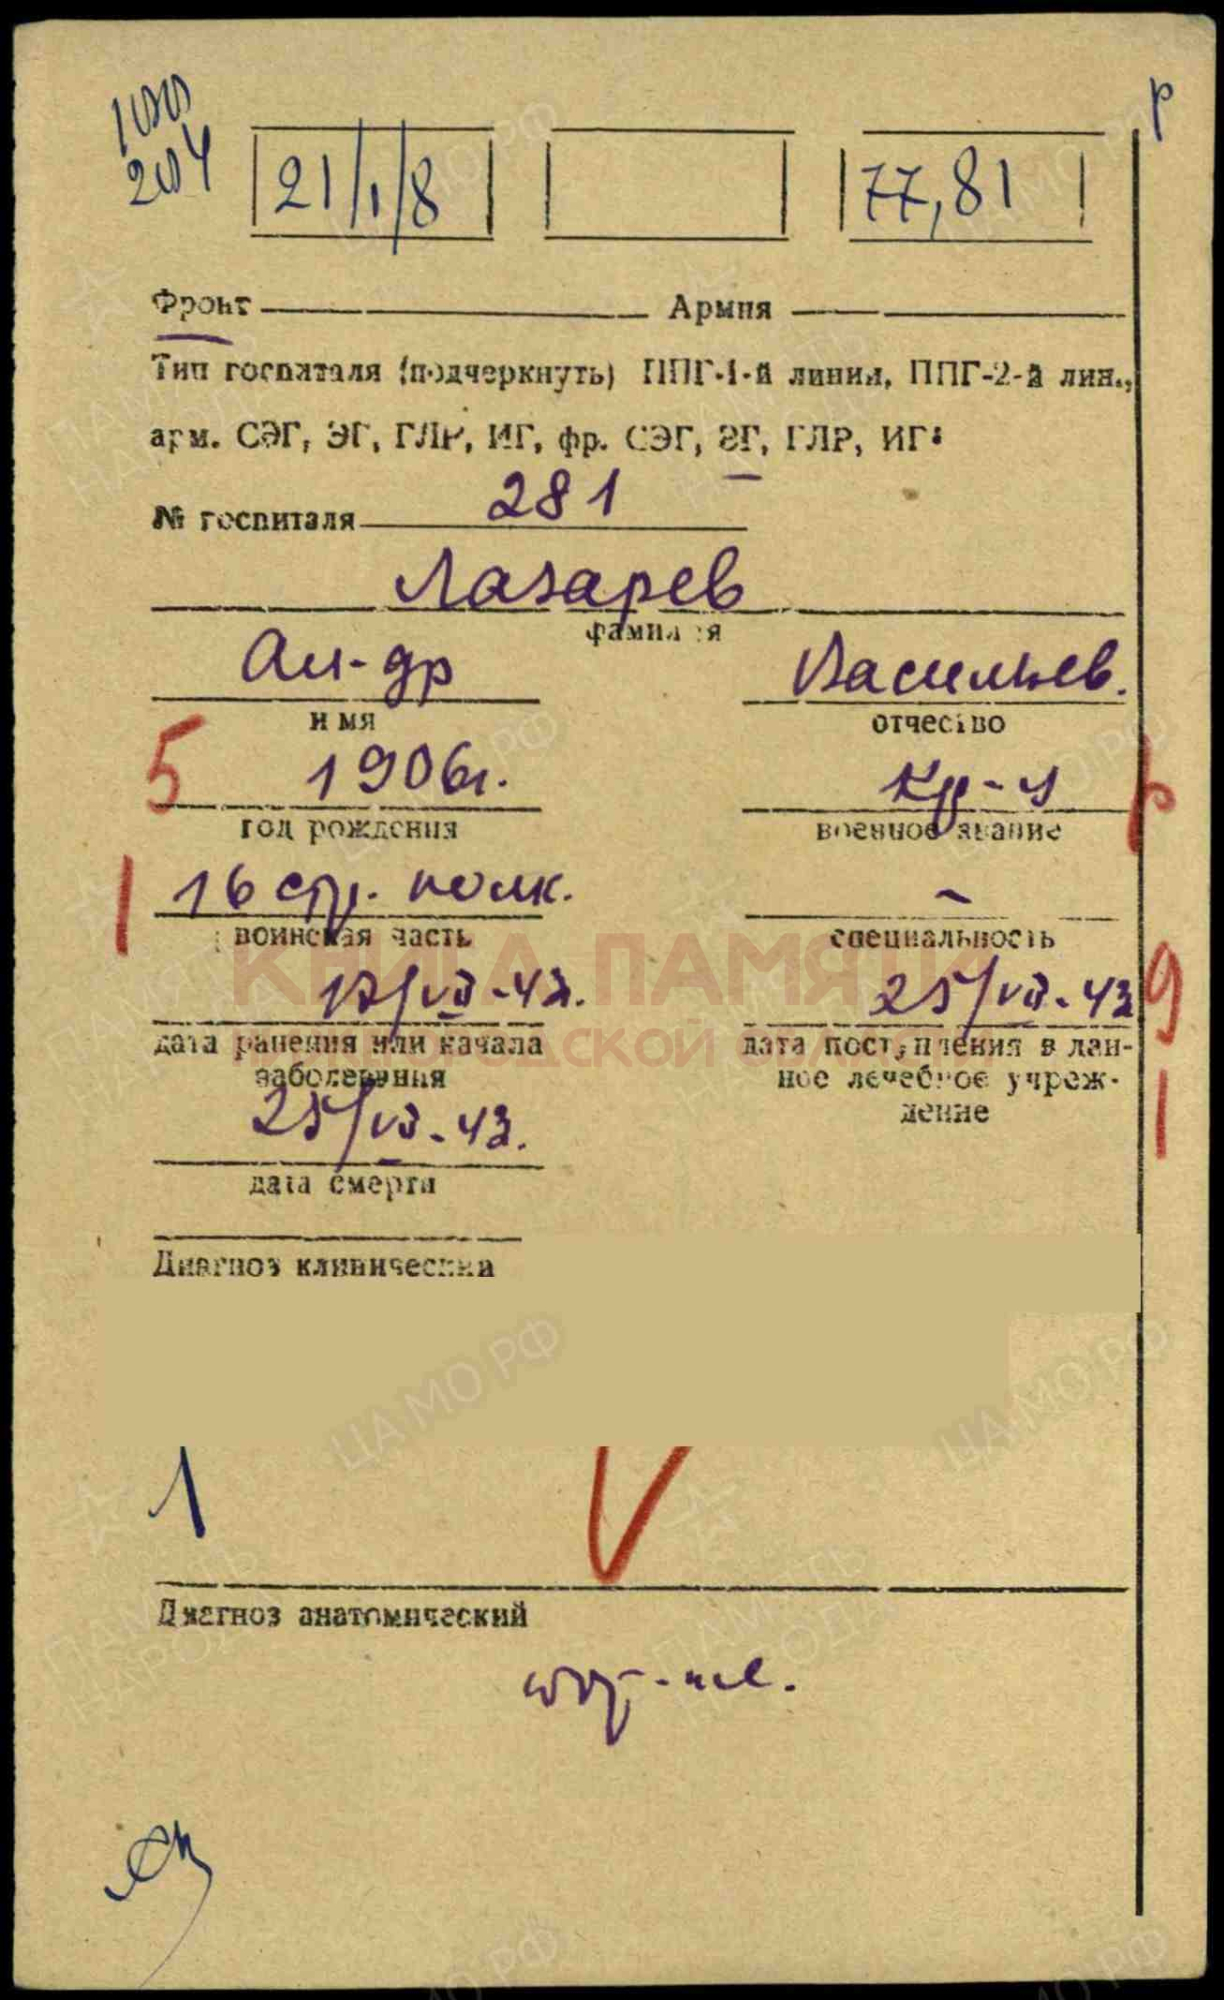 204
21/1/8
77,81
р
Фронт Армия
Тип госпиталя (подчеркнуть) ППГ-1-й линии, ППГ-2-й лин.,
арм. СЭГ, ЭГ, ГЛР, ИГ, фр. СЭГ, ЭГ, ГЛР, ИГ.
№ госпиталя 281
Лазарев
фамилия
Ал-др Васильев.
имя отчество
5 1906г. Кр-ц р
год рождения военное звание
1 16 стр. полк. -
воинская часть специальность
КНИГА ПАМЯТИ
17/VII-43. 25/VII-43 9
дата ранения или начала дата поступления в дан-
заболевания ное лечебное учреж-
25/VII-43. дение 1
дата смерти
Диагноз клинический
1 V
Диагноз анатомический
ЦАМО РФ
ПАМЯТЬ НАРОДА